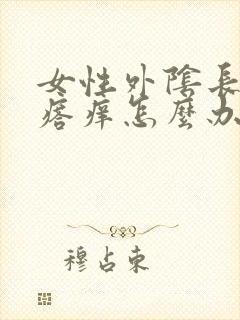 女性外陰長
瘩癢怎麼办
穆占東